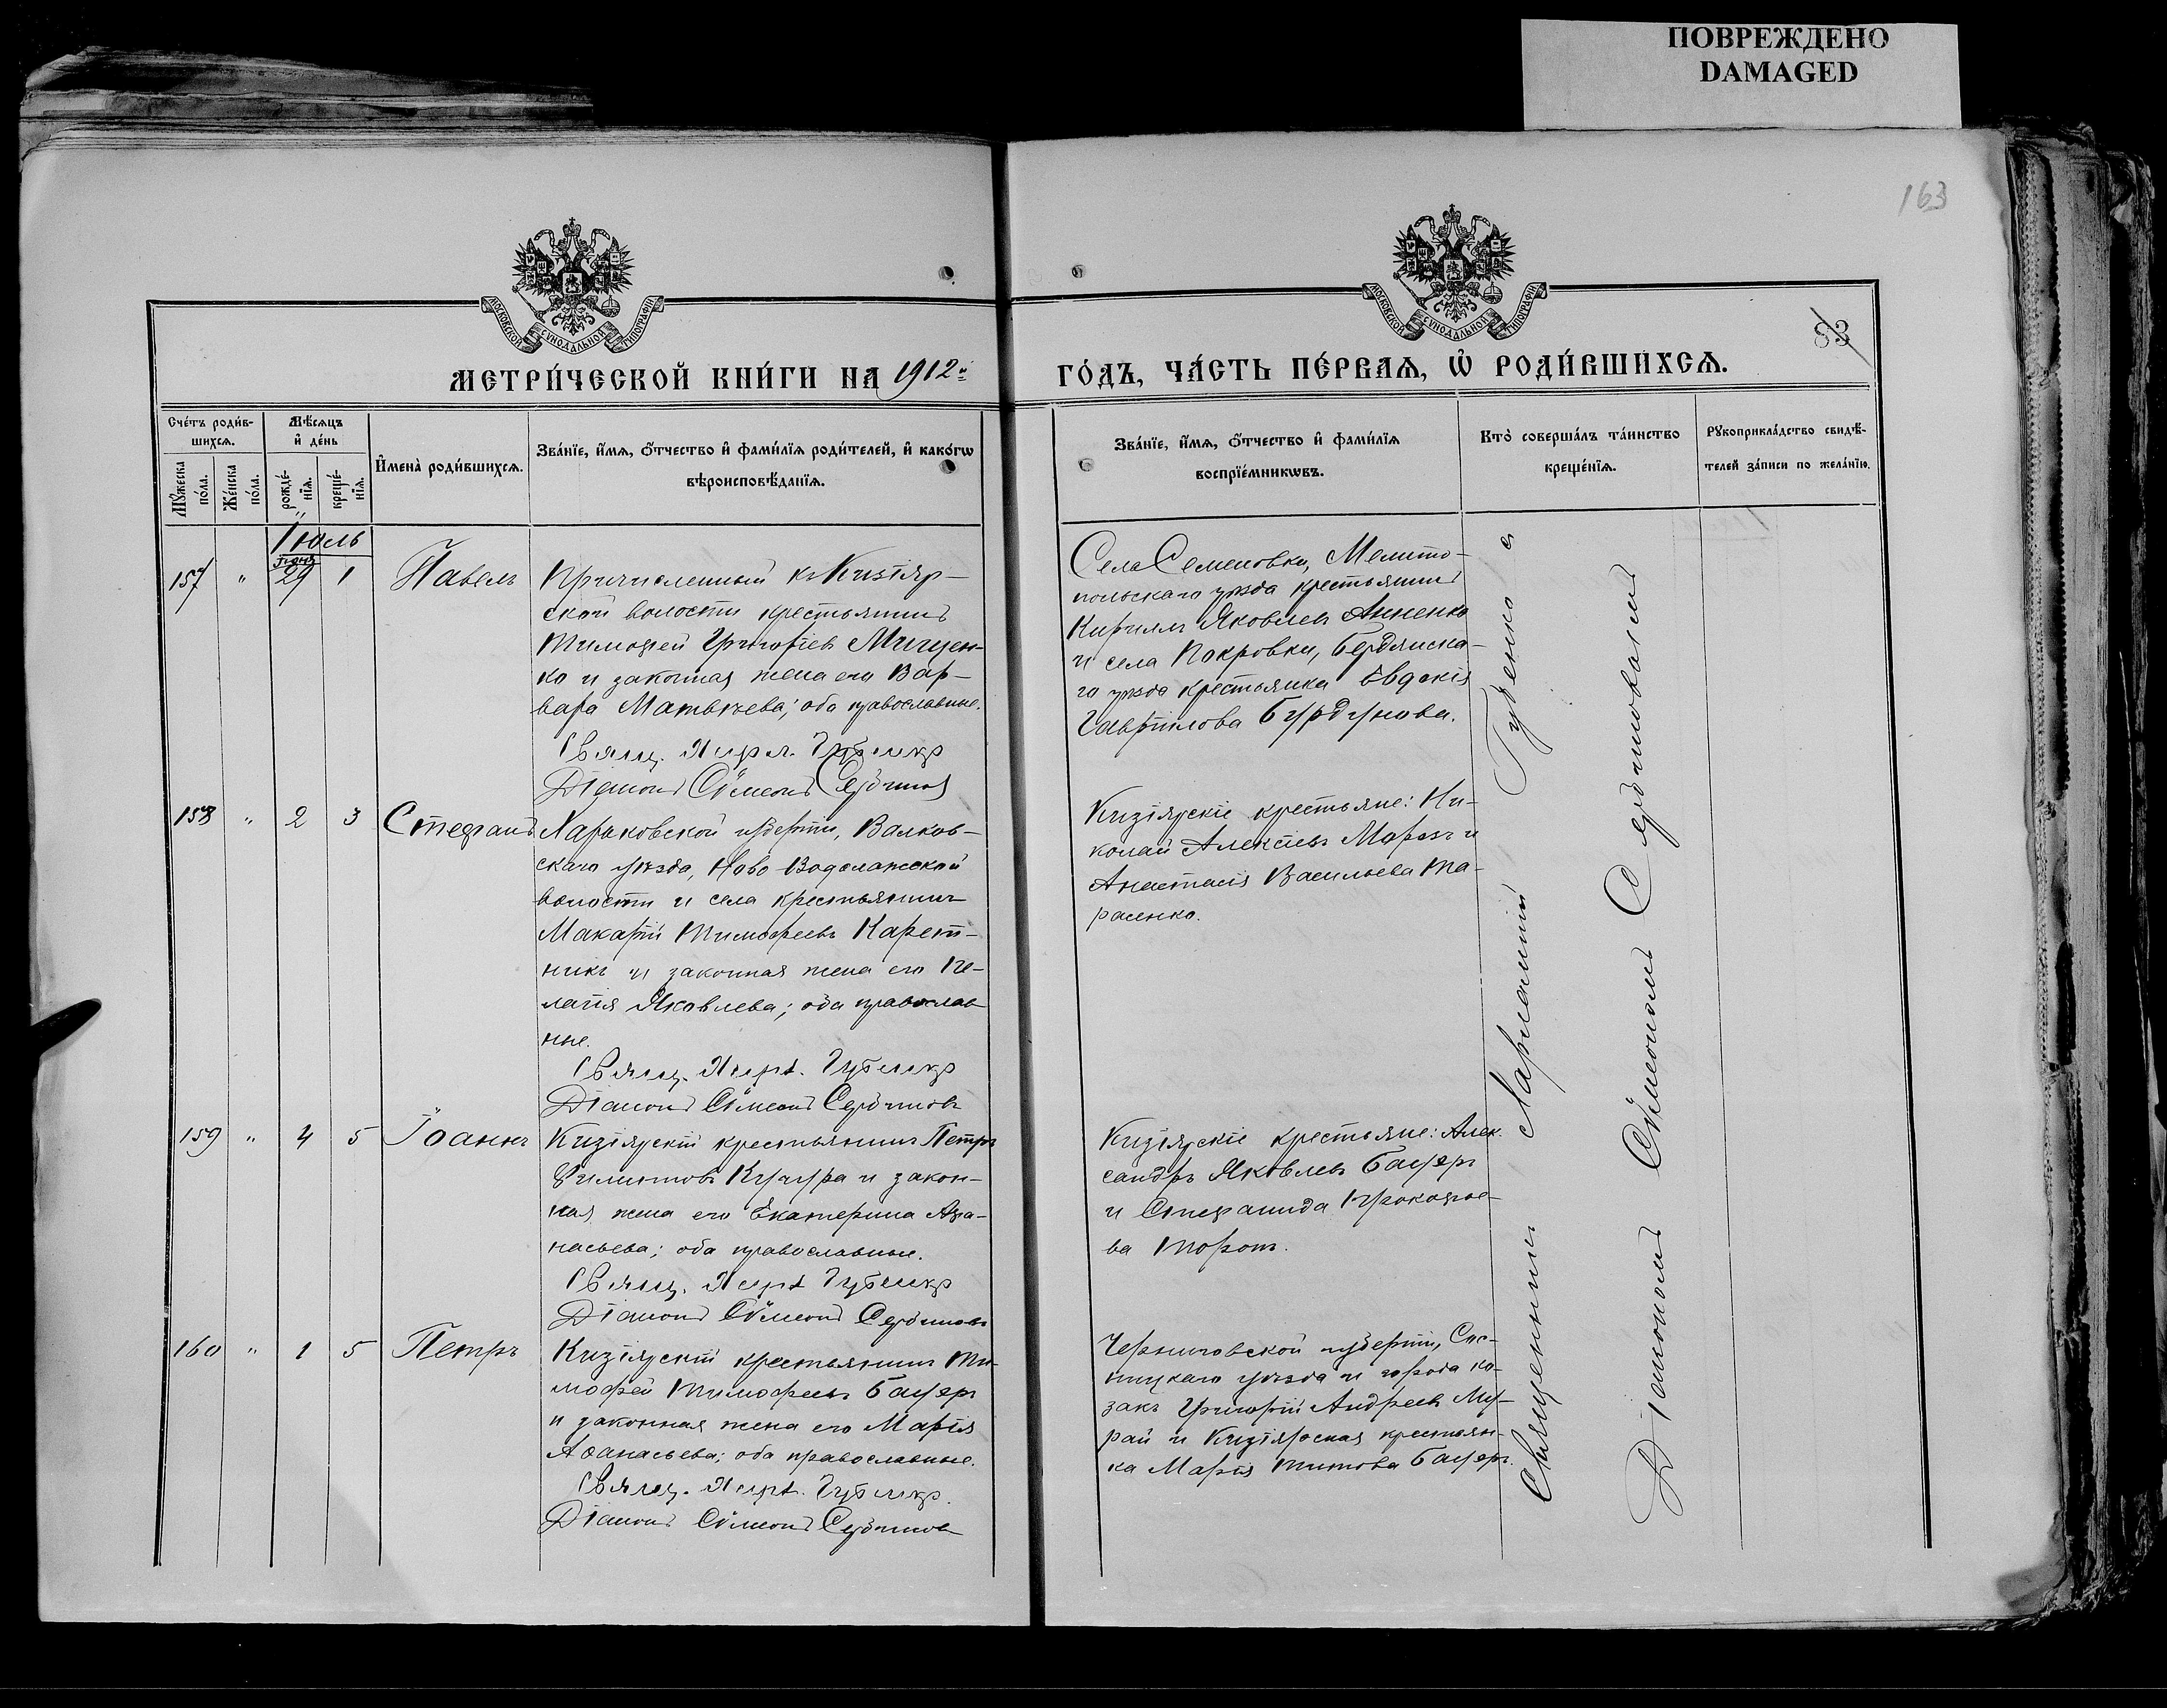 ПОВРЕЖДЕНО
DAMAGED
163
МОСКОВСКОЙ СѴНОДАЛЬНОЙ ТИПОГРАФІИ
МОСКОВСКОЙ СѴНОДАЛЬНОЙ ТИПОГРАФІИ
83
МЕТРИ́ЧЕСКОЙ КНИ́ГИ НА 1912й
ГО́ДЪ, ЧА́СТЬ ПЕ́РВАѦ, Ѡ РОДИ́ВШИХСѦ.
Сче́тъ роди́в-
шихсѧ.
Мѣ́сѧцъ
и де́нь
Мꙋ́жеска
по́ла.
Же́нска
по́ла.
рожде́-
нїѧ.
креще́-
нїѧ.
Имена̀ роди́вшихсѧ.
Зва́нїе, и́мѧ, ѻ́тчество и фами́лїѧ роди́телей, и како́гѡ
вѣроисповѣ́данїѧ.
Зва́нїе, и́мѧ, ѻ́тчество и фами́лїѧ
воспрїе́мникѡвъ.
Кто̀ соверша́лъ та́инство
креще́нїѧ.
Рꙋкоприкла́дство свидѣ́-
телей за́писи по жела́нїю.
Іюль
157 " 29 1 Павелъ
Причисленный къ Кизіяр-
ской волости крестьянинъ
Тимоѳей Григоріевъ Мищен-
ко и законная жена его Вар-
вара Матвѣева; оба православные.
Свящ. Лавр. Губенко
Діаконъ Сѵмеонъ
Села Семеновки, Мелито-
польскаго уѣзда крестьянинъ
Кириллъ Яковлевъ Анненко
и села Покровки, Бердянска-
го уѣзда крестьянка Евдокія
Гавріилова Бурдунова.
158 " 2 3 Стефанъ
Харьковской губерніи, Валков-
скаго уѣзда, Ново-Водолажской
волости и села крестьянинъ
Макарій Тимофеевъ Карет-
никъ и законная жена его Пе-
лагія Яковлева; оба православ
ные.
Свящ. Лавр. Губенко
Діаконъ Сѵмеонъ
Кизіярскіе крестьяне: Ни-
колай Алексіевъ Морозъ и
Анастасія Васильева Та-
расенко.
159 " 4 5 Іоаннъ
Кизіярскій крестьянинъ Петръ
Филиповъ Кучура и закон-
ная жена его Екатерина Афа-
насьева; оба православные.
Свящ. Лавр. Губенко
Діаконъ Сѵмеонъ
Кизіярскіе крестьяне: Алек-
сандръ Яковлевъ Бауеръ
и Стефанида Прокофье-
ва
160 " 1 5 Петръ
Кизіярскій крестьянинъ Ти-
мофей Тимофеевъ Бауеръ
и законная жена его Марія
Аѳанасьева; оба православные.
Свящ. Лавр. Губенко.
Діаконъ Сѵмеонъ
Черниговской губерніи, Сос-
ницкаго уѣзда и города ко-
закъ Григорій Андреевъ Му-
рай и Кизіярская крестьян-
ка Марія Титова Бауеръ.
Священникъ Лаврентій Губенко съ
Діакономъ Сѵмеономъ